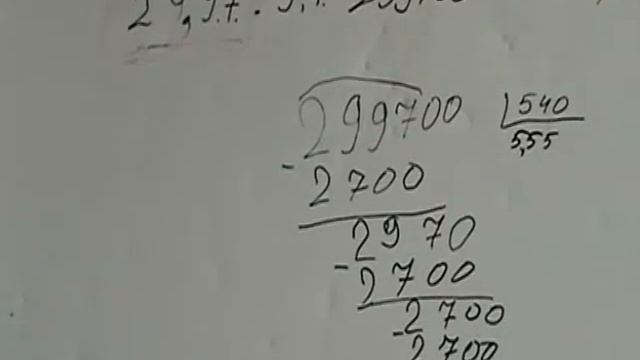 299700 540
5,55
- 2700
2970
- 2700
2700
- 2700